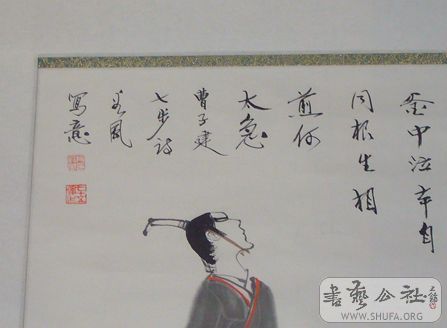 釜中泣本自
同根生相
煎何
太急
曹子建
七步诗
春風
寫意
書藝公社
WWW.SHUFA.ORG